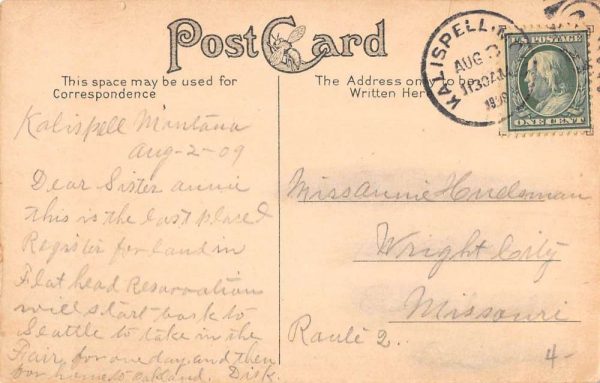 Post Card
This space may be used for
Correspondence
The Address only to be
Written Here
KALISPELL, M
AUG
1130AM
U.S. POSTAGE
ONE CENT
Kalispell Montana
Aug-2-09
Dear Sister annie
this is the last place I
Register for land in
Flat head Resarvation
will start back to
Seattle to take in the
Fair, for one day, and then
for home to oakland. Dick.
Miss Annie Hudsman
Wright City
Missouri
Raule 2.
4-